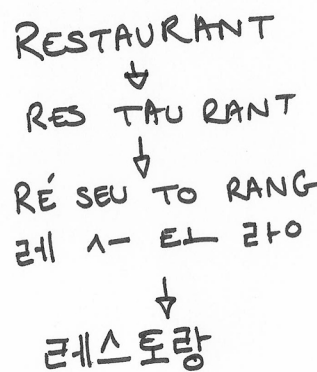 RESTAURANT
RES TAU RANT
RÉ SEU TO RANG
레 ㅅㅡ 토 랑
레스토랑